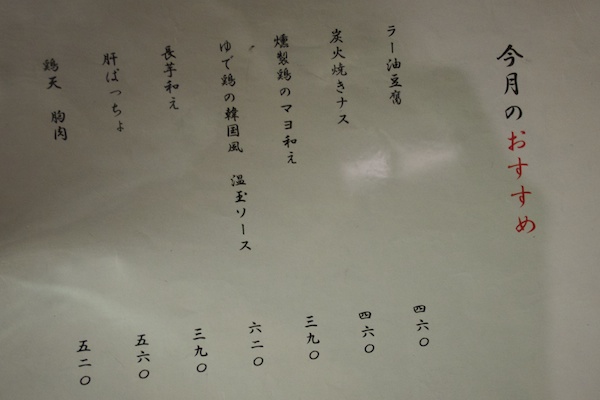 今月のおすすめ
ラー油豆腐 四六〇
炭火焼きナス 四六〇
燻製鶏のマヨ和え 三九〇
ゆで鶏の韓国風 温玉ソース 六二〇
長芋和え 三九〇
肝ぱっちょ 五六〇
鶏天 胸肉 五二〇